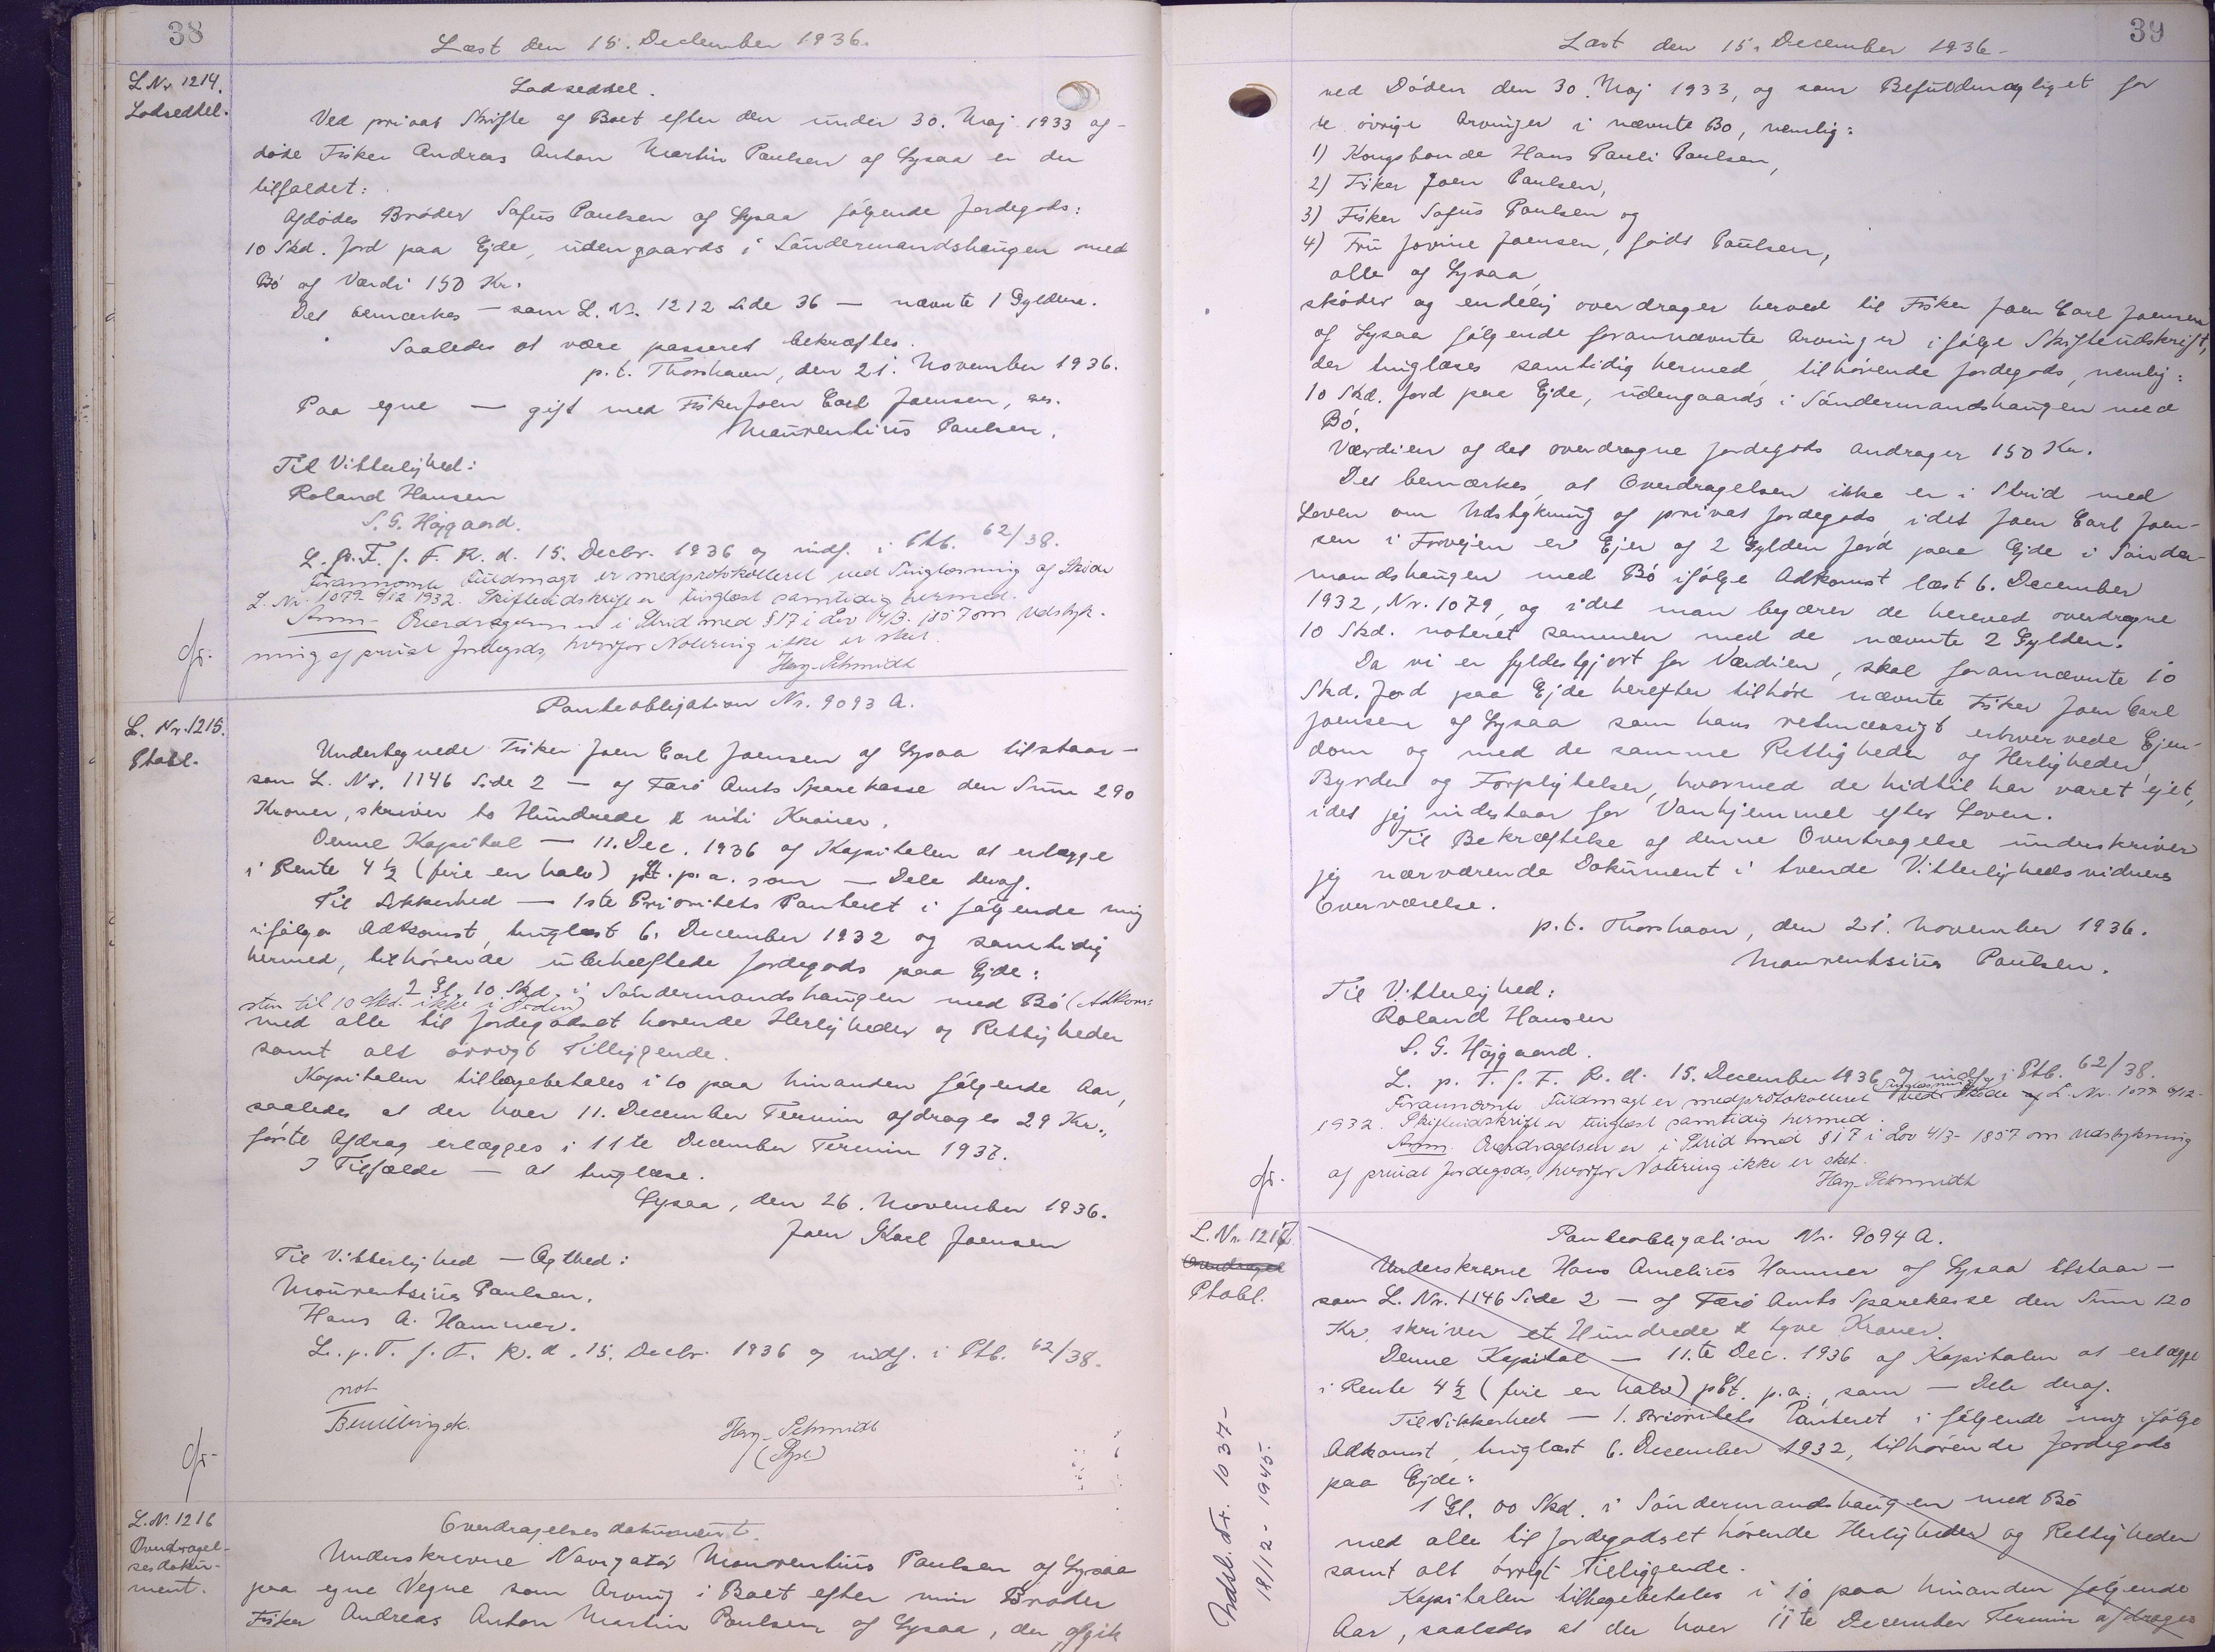 38
Læst den 15. December 1936.
L Nr. 1214.
Lodseddel.
Lodseddel.
Ved privat Skifte af Boet efter den under 30. Maj 1933 af-
døde Fisker Andreas Anton Martin Paulsen af Lysaa er der
tilfaldet:
Afdødes Broder Sofus Paulsen af Lysaa følgende Jordegods:
10 Skd. Jord paa Ejde, udengaards i Søndermandshaugen med
Bø af Værdi 150 Kr.
Det bemærkes – som L. Nr. 1212 Side 36 – nævnte 1 Gylden.
Saaledes at være passeret bekræftes.
p.t. Thorshavn, den 21. November 1936.
Paa egne — gift med Fisker Joen Carl Joensen,
Maurentius Paulsen.
Til Vitterlighed:
Roland Hansen
S. G. Højgaard.
L. p. T. f. F. R. d. 15. Decbr. 1936 og indf. i Ptb. 62/38.
Forannævnte Fuldmagt er medprotokolleret ved Tinglæsning af Skøde
L. Nr. 1079 6/12 1932. Skifteudskrift er tinglæst samtidig hermed.
Anm. Overdragelsen er i Strid med § 17 i Lov 4/3- 1857 om Udstyk-
ning af privat Jordegods, hvorfor Notering ikke er sket.
Hay-Schmidt
L. Nr. 1215.
Ptobl.
Panteobligation Nr. 9093 A.
Undertegnede Fisker Joen Carl Joensen af Lysaa tilstaar –
som L. Nr. 1146 Side 2 – af Færø Amts Sparekasse den Sum 290
Kroner, skriver to Hundrede & niti Kroner.
Denne Kapital — 11. Dec. 1936 af Kapitalen at erlægge
i Rente 4½ (fire en halv) pCt. p.a. som — Dele deraf.
Til Sikkerhed — 1ste Prioritets Panteret i følgende mig
ifølge Adkomst, tinglæst 6. December 1932 og samtidig
hermed, tilhørende ubehæftede Jordegods paa Ejde:
2 Gl. 10 Skd. i Søndermandshaugen med Bø (Adkom-
sten til 10 Skd. ikke i Orden)
med alle til Jordegodset hørende Herligheder og Rettigheder
samt alt øvrigt Tilliggende.
Kapitalen tilbagebetales i 10 paa hinanden følgende Aar,
saaledes at der hver 11. December Termin afdrages 29 Kr.,
første Afdrag erlægges i 11te December Termin 1937.
I Tilfælde — at tinglæse.
Lysaa, den 26. November 1936.
Joen Karl Joensen
Til Vitterlighed — Ægthed:
Maurentsius Paulsen.
Hans A. Hammer.
L. p. T. f. F. R. d. 15. Decbr. 1936 og indf. i Ptb. 62/38.
not
Hay-Schmidt
L. N. 1216
Overdragel-
sesdoku-
ment.
Overdragelsesdokument.
Underskrevne Navigatør Maurentius Paulsen af Lysaa
paa egne Vegne som Arving i Boet efter min Broder
Fisker Andreas Anton Martin Poulsen af Lysaa, der afgik
39
Læst den 15. December 1936 –
ved Døden den 30. Maj 1933, og som Befuldmægtiget for
de øvrige Arvinger i nævnte Bo, nemlig:
1) Kongsbonde Hans Pauli Paulsen,
2) Fisker Joen Paulsen,
3) Fisker Sofus Paulsen og
4) Fru Jovine Joensen, født Paulsen,
alle af Lysaa,
skøder og endelig overdrager herved til Fisker Joen Carl Joensen
af Lysaa følgende forannævnte Arvinger ifølge Skifteudskrift,
der tinglæses samtidig hermed, tilhørende Jordegods, nemlig:
10 Skd. Jord paa Ejde, udengaards i Søndermandshaugen med
Bø.
Værdien af det overdragne Jordegods andrager 150 Kr.
Det bemærkes, at Overdragelsen ikke er i Strid med
Loven om Udstykning af privat Jordegods, idet Joen Carl Joen-
sen i Forvejen er Ejer af 2 Gylden Jord paa Ejde i Sønder-
mandshaugen med Bø ifølge Adkomst læst 6. December
1932, Nr. 1079, og idet man begærer de herved overdragne
10 Skd. noteret sammen med de nævnte 2 Gylden.
Da vi er fyldestgjort for Værdien, skal forannævnte 10
Skd. Jord paa Ejde herefter tilhøre nævnte Fisker Joen Carl
Joensen af Lysaa som hans retmæssigt erhvervede Ejen-
dom og med de samme Rettigheder og Herligheder,
Byrder og Forpligtelser, hvormed de hidtil har været ejet,
idet jeg indestaar for Vanhjemmel efter Loven.
Til Bekræftelse af denne Overtragelse underskriver
jeg nærværende Dokument i tvende Vitterlighedsvidners
Overværelse.
p.t. Thorshavn, den 21. November 1936.
Maurentsius Paulsen.
Til Vitterlighed:
Roland Hansen
S. G. Højgaard.
L. p. T. f. F. R. d. 15. December 1936 og indf. i Ptb. 62/38.
Forannævnte Fuldmagt er medprotokolleret ved Tinglæsning af Skøde L. Nr. 1079 6/12-
1932. Skifteudskrift er tinglæst samtidig hermed.
Anm. Overdragelsen er i Strid med § 17 i Lov 4/3- 1857 om Udstykning
af privat Jordegods, hvorfor Notering ikke er sket.
Hay-Schmidt
L. Nr. 1217
Overdragel
Ptobl.
Panteobligation Nr. 9094 A.
Underskrevne Hans Amelius Hammer af Lysaa tilstaar –
som L. Nr. 1146 Side 2 – af Færø Amts Sparekasse den Sum 120
Kr. skriver et Hundrede & tyve Kroner.
Denne Kapital — 11.te Dec. 1936 af Kapitalen at erlægge
i Rente 4½ (fire en halv) pCt. p.a., som — Dele deraf.
Til Sikkerhed — 1. Prioritets Panteret i følgende mig ifølge
Adkomst, tinglæst 6. December 1932, tilhørende Jordegods
paa Ejde:
1 Gl. 00 Skd. i Søndermandshaugen med Bø
med alle til Jordegodset hørende Herligheder og Rettigheder
samt alt øvrigt Tilliggende.
Kapitalen tilbagebetales i 10 paa hinanden følgende
Aar, saaledes at der hver 11te December Termin afdrages
Indsl. Nr. 1037-
18/12 - 1945.